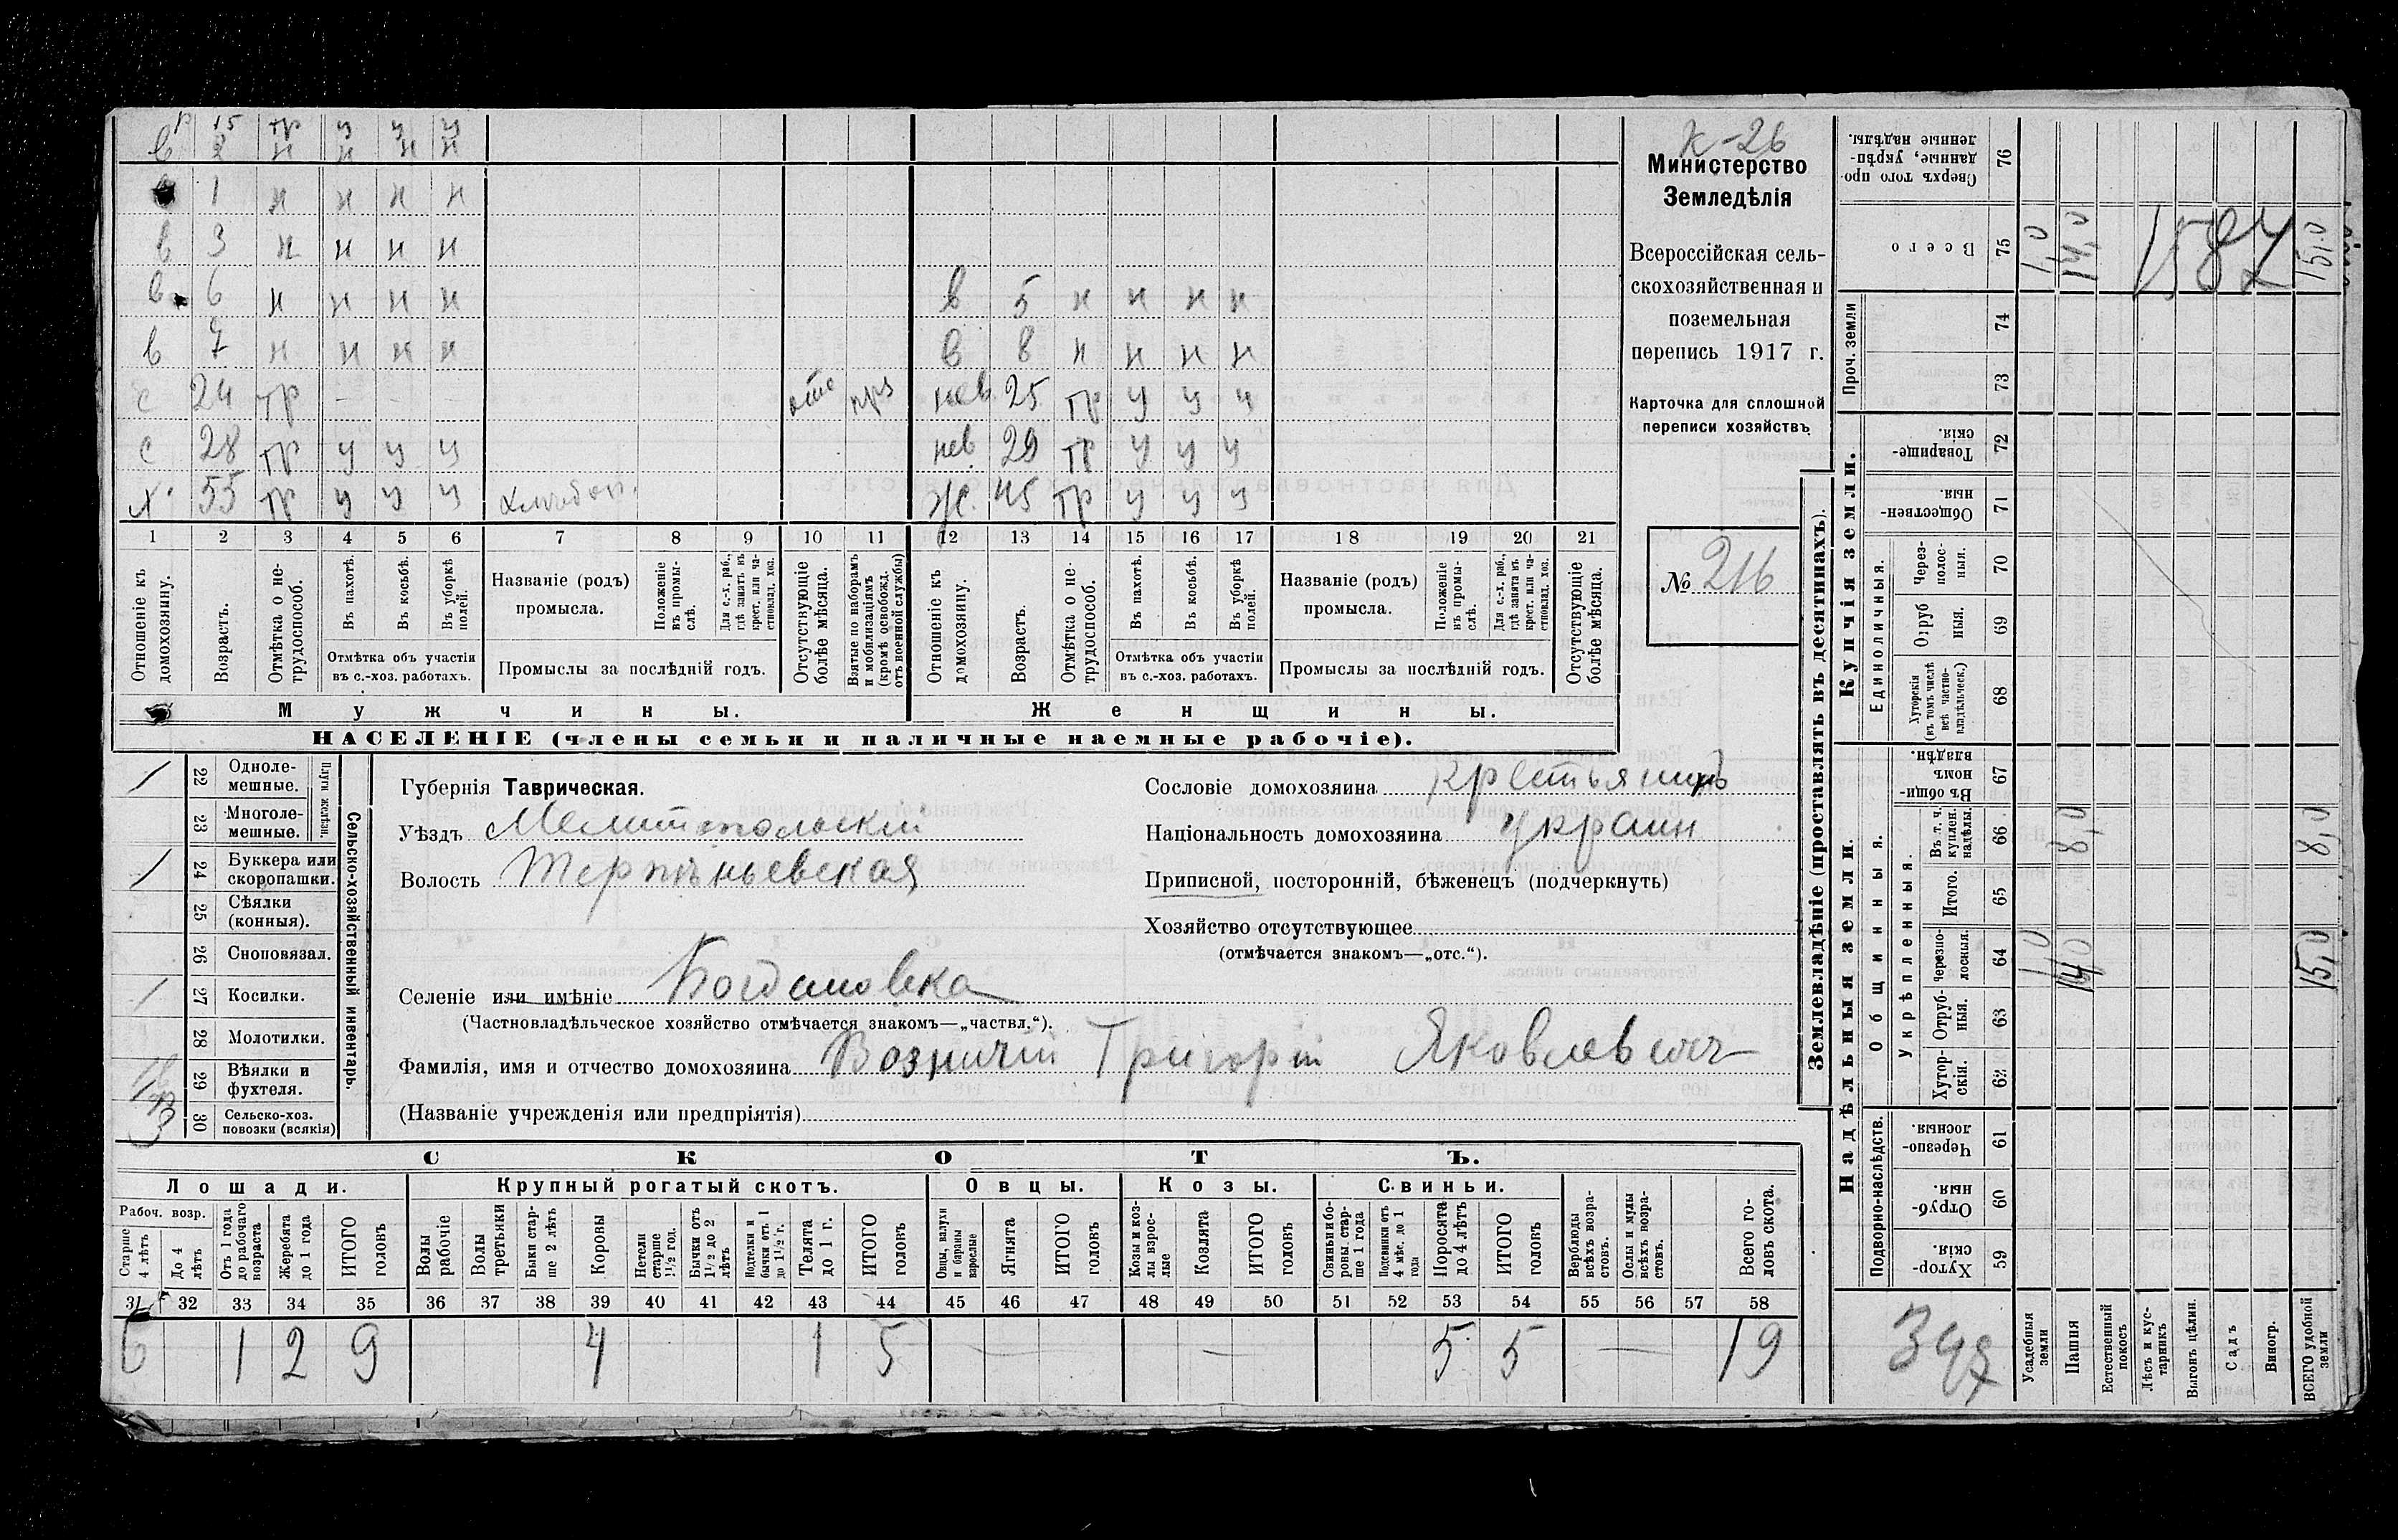 К-26
Министерство
Земледѣлія
Всероссійская сель-
скохозяйственная и
поземельная
перепись 1917 г.
Карточка для сплошной
переписи хозяйствъ
№ 216
р 15 тр у у у
в 2 н н н н
1 н н н н
в 3 н н н н
в 6 н н н н в 5 н н н н
в 7 н н н н в 8 н н н н
с 24 тр - - - отс прз нев 25 тр у у у
с 28 тр у у у нев 29 тр у у у
х 55 тр у у у хлѣбор. ж. 45 тр у у у
1 2 3 4 5 6 7 8 9 10 11 12 13 14 15 16 17 18 19 20 21
Отношеніе къ домохозяину.
Возрастъ.
Отмѣтка о не-трудоспособ.
Въ пахотѣ.
Въ косьбѣ.
Въ уборкѣ полей.
Отмѣтка объ участіи въ с.-хоз. работахъ.
Названіе (родъ) промысла.
Положеніе въ промы-слѣ.
Для с.-х. раб., гдѣ занятъ въ крест. или ча-стновлад. хоз.
Промыслы за послѣдній годъ.
Отсутствующіе болѣе мѣсяца.
Взятые по наборамъ и мобилизаціямъ (кромѣ освобожд. отъ военной службы)
Отношеніе къ домохозяину.
Возрастъ.
Отмѣтка о не-трудоспособ.
Въ пахотѣ.
Въ косьбѣ.
Въ уборкѣ полей.
Отмѣтка объ участіи въ с.-хоз. работахъ.
Названіе (родъ) промысла.
Положеніе въ промы-слѣ.
Для с.-х. раб., гдѣ занята въ крест. или ча-стновлад. хоз.
Промыслы за послѣдній годъ.
Отсутствующіе болѣе мѣсяца.
Мужчины. Женщины.
НАСЕЛЕНІЕ (члены семьи и наличные наемные рабочіе).
Сельско-хозяйственный инвентарь.
Плуги желѣзн.
/ 22 Одноле-мешные.
23 Многоле-мешные.
/ 24 Буккера или скоропашки.
25 Сѣялки (конныя).
26 Сноповязал.
/ 27 Косилки.
28 Молотилки.
29 Вѣялки и фухтеля.
3 30 Сельско-хоз. повозки (всякія)
Губернія Таврическая.
Уѣздъ Мелитопольскій
Волость Терпѣньевская
Сословіе домохозяина Крестьянинъ
Національность домохозяина украин
Приписной, посторонній, бѣженецъ (подчеркнуть)
Хозяйство отсутствующее
(отмѣчается знакомъ—„отс.“).
Селеніе или имѣніе Богдановка
(Частновладѣльческое хозяйство отмѣчается знакомъ—„частвл.“).
Фамилія, имя и отчество домохозяина Возничій Григорій Яковлевичъ
(Названіе учрежденія или предпріятія)
СКОТЪ.
Лошади. Крупный рогатый скотъ. Овцы. Козы. Свиньи.
Рабоч. возр.
Старше 4 лѣтъ
До 4 лѣтъ
Отъ 1 года до рабочаго возраста
Жеребята до 1 года
ИТОГО головъ
Волы рабочіе
Волы третьяки
Быки стар-ше 2 лѣтъ
Коровы
Нетели старше 1½ год.
Бычки отъ 1½ до 2 лѣтъ
Подтелки и бычки отъ 1 до 1½ г.
Телята до 1 г.
ИТОГО головъ
Овцы, валухи и бараны взрослые
Ягнята
ИТОГО головъ
Козы и коз-лы взрос-лые
Козлята
ИТОГО головъ
Свиньи и бо-ровы стар-ше 1 года
Подсвинки отъ 4 мѣс. до 1 года
Поросята до 4 лѣтъ
ИТОГО головъ
Верблюды всѣхъ возра-стовъ.
Ослы и мулы всѣхъ возра-стовъ.
Всего го-ловъ скота.
31 32 33 34 35 36 37 38 39 40 41 42 43 44 45 46 47 48 49 50 51 52 53 54 55 56 57 58
6 1 2 9 4 1 5 — — 5 5 — 19
Землевладѣніе (проставлять въ десятинахъ).
Купчія земли.
Надѣльныя земли.
Сверхъ того про-данные, укрѣп-ленные надѣлы. 76
Всего 75 1,0 14,0 15,0
1587
Проч. земли 74 73
Товарище-скія. 72
Обществен-ныя. 71
Единоличныя.
Через-полос-ныя. 70
Отруб ныя. 69
Хуторскія (въ томъ числѣ всѣ частно-владѣльческ.) 68
Общинныя.
Въ общи-номъ владѣн. 67
Укрѣпленныя.
Въ т. ч. куплен. надѣлы. 66 8,0 8,0
Итого. 65
Черезпо-лосныя. 64 1,0 14,0 15,0
Отруб-ныя. 63
Хутор-скія. 62
Подворно-наслѣдств.
Черезпо-лосныя. 61
Отруб-ныя. 60
Хутор-скія. 59
Усадебныя земли
Пашня
Естественный покосъ
Лѣсъ и кус-тарникъ
Выгонъ цѣлин.
Садъ
Виногр.
ВСЕГО удобной земли